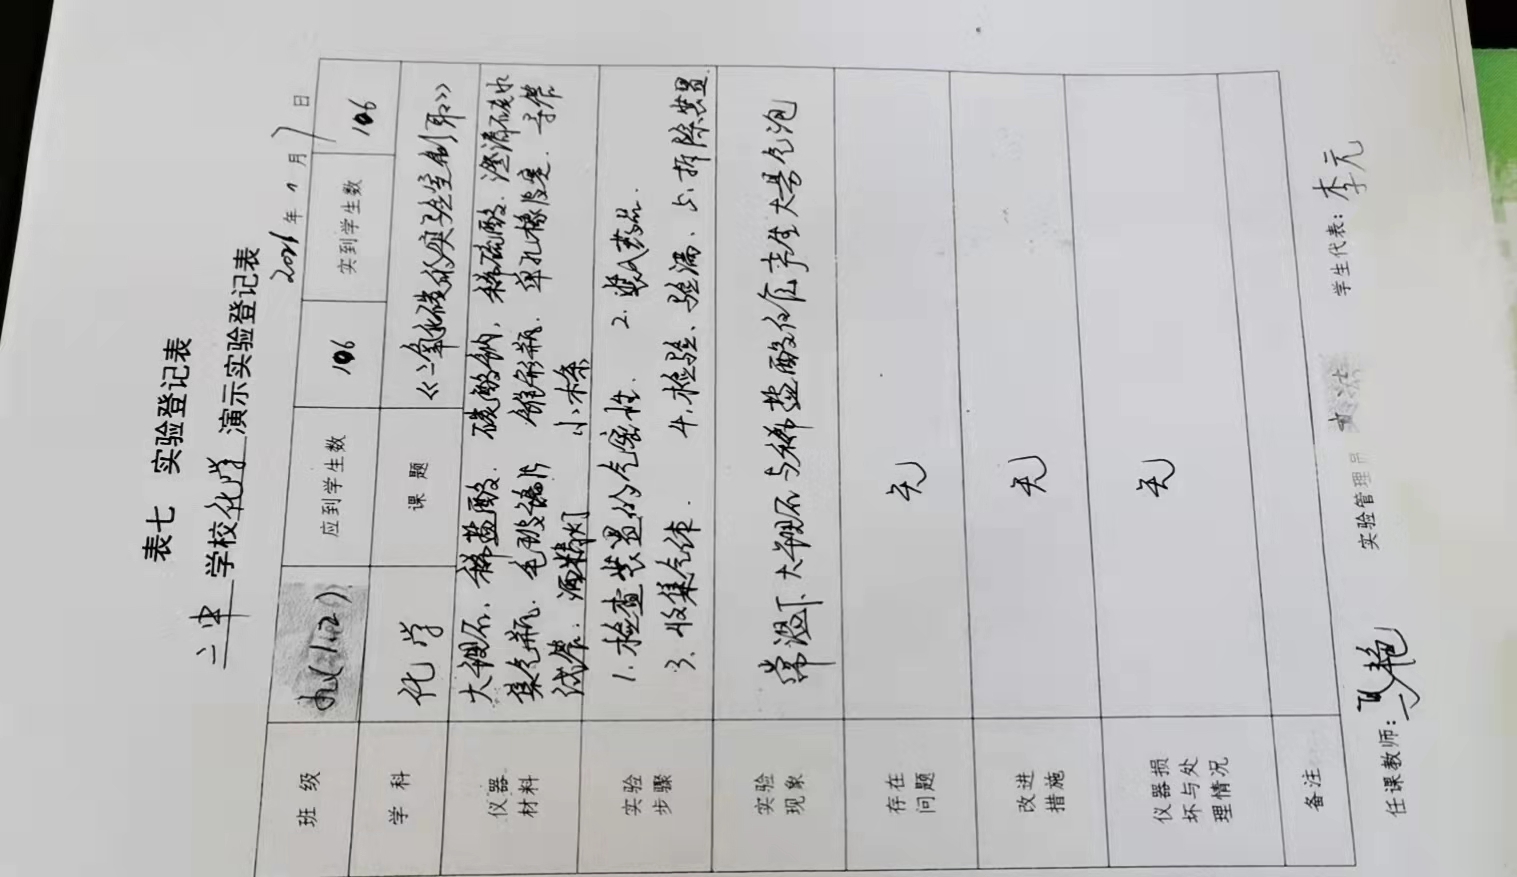 表七 实验登记表
二中 学校 化学 演示实验登记表
2021 年 月 7 日
班级 九(1.2) 应到学生数 106 实到学生数 106
学科 化学 课题 《二氧化碳的实验室制取》
仪器材料 大理石、稀盐酸、碳酸钠、稀硫酸、澄清石灰水
集气瓶、毛玻璃片 锥形瓶、单孔橡皮塞、导管
试管、酒精灯 小木条
实验步骤 1. 检查装置的气密性、 2. 装入药品
3. 收集气体、 4. 检验、验满、 5. 拆除装置
实验现象 常温下大理石与稀盐酸 产生大量气泡
存在问题 无
改进措施 无
仪器损坏与处理情况 无
备注
任课教师: 艳 实验管理员 学生代表: 李元